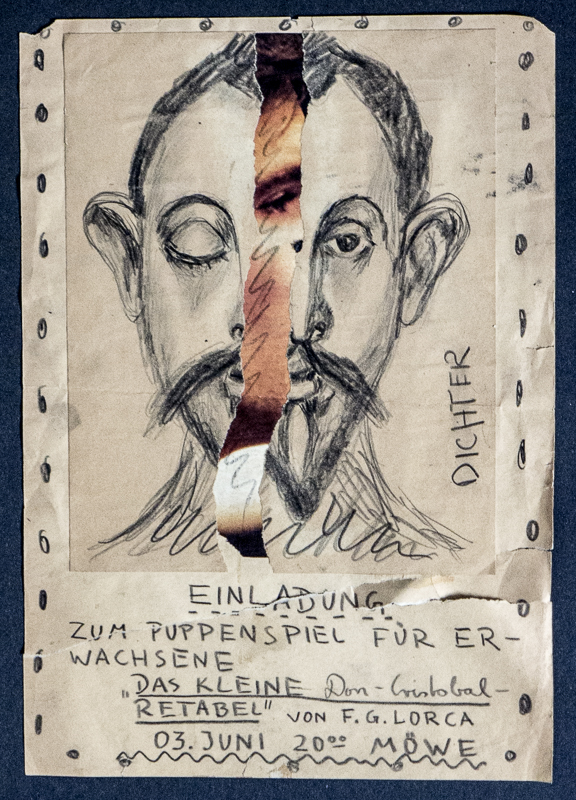 DICHTER
EINLADUNG
ZUM PUPPENSPIEL FÜR ER-
WACHSENE
„DAS KLEINE Don-Cristobal-
RETABEL" VON F.G. LORCA
03. JUNI 20⁰⁰ MÖWE